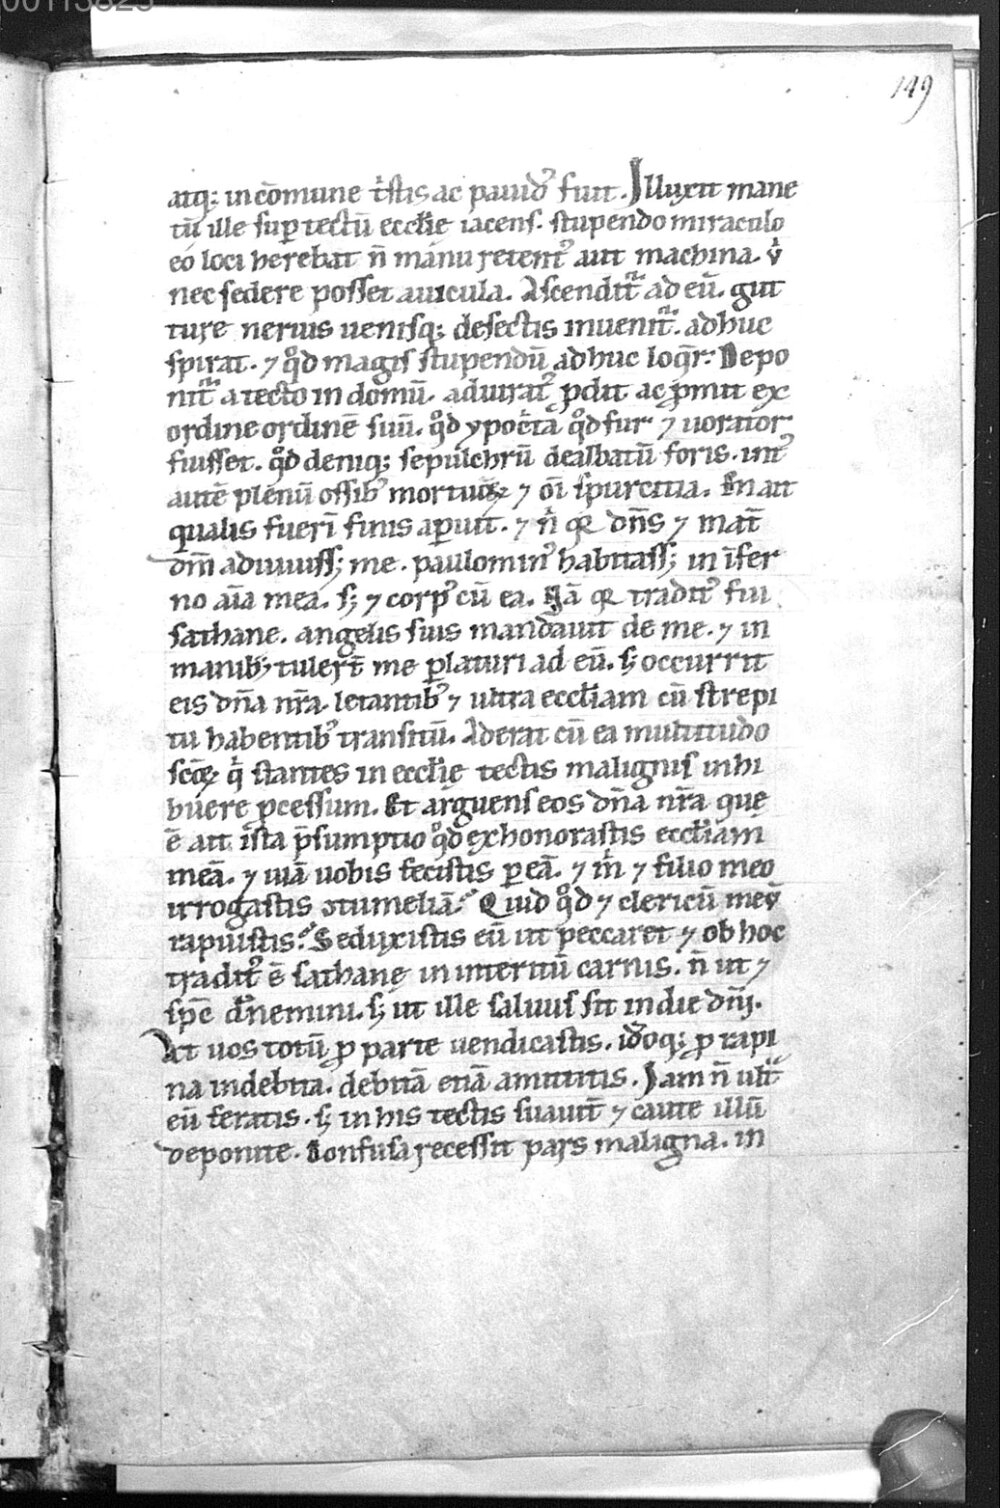 00113825
149
atq; in cōmune tͥstis ac pauidꝰ fuit. Illuxit mane
tū ille suꝑ tectū eccl̄ię iacens. stupendo miraculo
eo loci herebat n̄ manu retentꝰ aut machina. ů
nec sedere posset auicula. Ascendit᷑ ad eū. gut
ture neruis uenisq; desectis inuenit᷑. adhuc
spirat. ⁊ qͦd magis stupendū adhuc loqͥr. Depo
nit᷑ a tecto in domū. adiurat᷑ ꝓdit ac ꝓmit ex
ordine ordinē suū. qͦd ypoc̄ta qͦd fur ⁊ uorator
fuisset. qͦd deniq; sepulchrū dealbatū foris. intꝰ
autē plenū ossibꝰ mortuoꝝ ⁊ oī spurcitia. En ait
qualis fuerī finis aperuit. ⁊ nͥ qꝛ dn̄s ⁊ mat̄
dn̄i adiuuiss; me. paulominꝰ habitass; in īfer
no aīa mea. s; ⁊ corpꝰ cū ea. Nā qꝛ traditꝰ fui
sathane. angelis suis mandauit de me. ⁊ in
manib; tuler̄t me ꝑlaturi ad eū. s; occurrit
eis dn̄a nr̄a letantibꝰ ⁊ ultra eccl̄iam cū strepi
tu habentibꝰ transitū. Aderat cū ea multitudo
scōꝝ qͥ stantes in eccl̄ię tectis malignis inhi
buere ꝓcessum. Et arguens eos dn̄a nr̄a quę
ē ait ista p̄sumptio qͦd exhonorastis eccl̄iam
meā. ⁊ uiā uobis fecistis ꝑ eā. ⁊ mͥ ⁊ filio meo
irrogastis ꝯtumeliā. Quid qͦd ⁊ clericū meū
rapuistis. Seduxistis eū ut peccaret ⁊ ob hoc
traditꝰ ē sathanę in interitū carnis. n̄ ut ⁊
sp̄c s; ut ille saluus sit in die dn̄i.
At uos totū ꝓ parte uendicastis. idͦoq; ꝓ rapi
na indebita. debitā etiā amittitis. Iam n̄ ult᷑
eū feratis. s; in his tectis suauit̄ ⁊ caute illū
deponite. Confusa recessit pars maligna. in